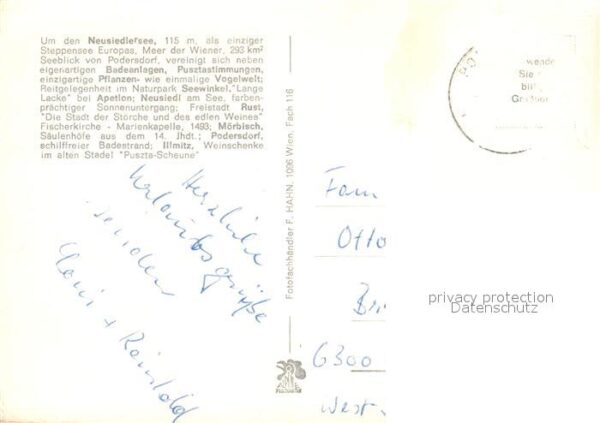 Um den Neusiedlersee, 115 m, als einziger
Steppensee Europas, Meer der Wiener, 293 km²
Seeblick von Podersdorf, vereinigt sich neben
eigenartigen Badeanlagen, Pusztastimmungen,
einzigartige Pflanzen- wie einmalige Vogelwelt;
Reitgelegenheit im Naturpark Seewinkel. "Lange
Lacke" bei Apetlon; Neusiedl am See, farben-
prächtiger Sonnenuntergang; Freistadt Rust,
"Die Stadt der Störche und des edlen Weines"
Fischerkirche - Marienkapelle, 1493; Mörbisch,
Säulenhöfe aus dem 14. Jhdt.; Podersdorf,
schilffreier Badestrand; Illmitz, Weinschenke
im alten Stadel "Puszta-Scheune"
Herzliche
Urlaubsgrüße
senden
+ Reinhold
Fotofachhändler F. HAHN, 1096 Wien, Fach 116
Fam
Otto
Br
6300
West-
PO
wende
Sie
bitt
privacy protection
Datenschutz